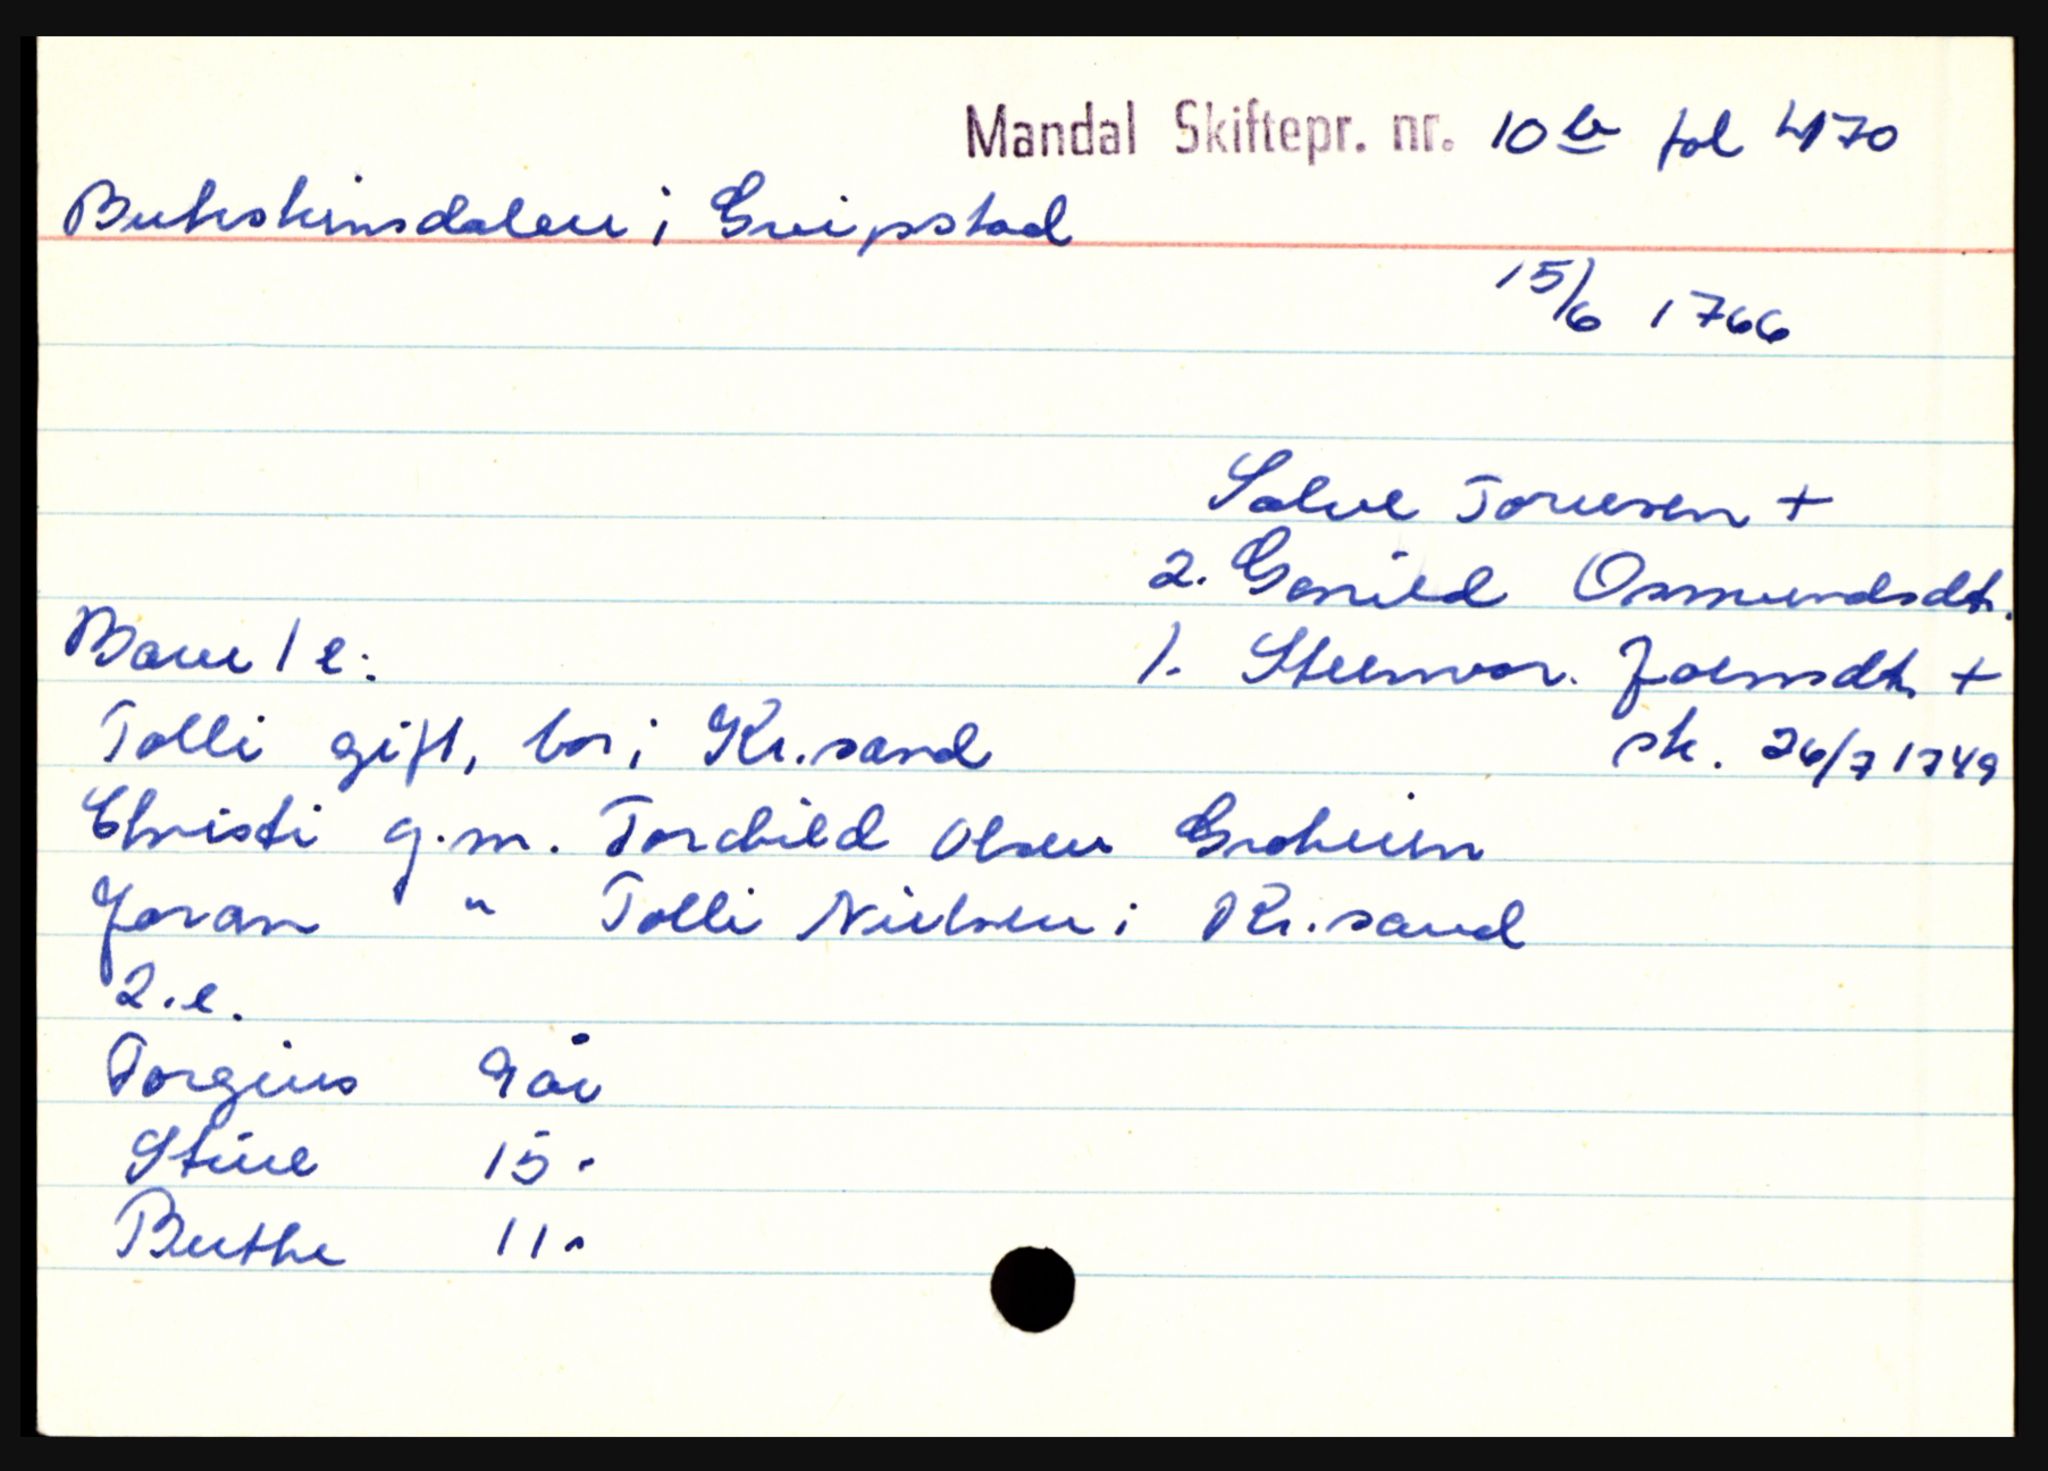 Mandal Skiftepr. nr. 10 b fol 470
Bukskinsdalen i Greipstad
15/6 1766
Salve Torresen +
2. Gonild Osmundsdt.
Barn 1 e: 1. Steenvor. Joensdt. +
Tolli gift, bor i Kr.sand sk. 26/7 1749
Christi g.m. Torchild Olsen Groheim
Joran " Tolli Nielsen i Kr.sand
2.e.
Torgius 9 år
Stine 15 "
Berthe 11 "